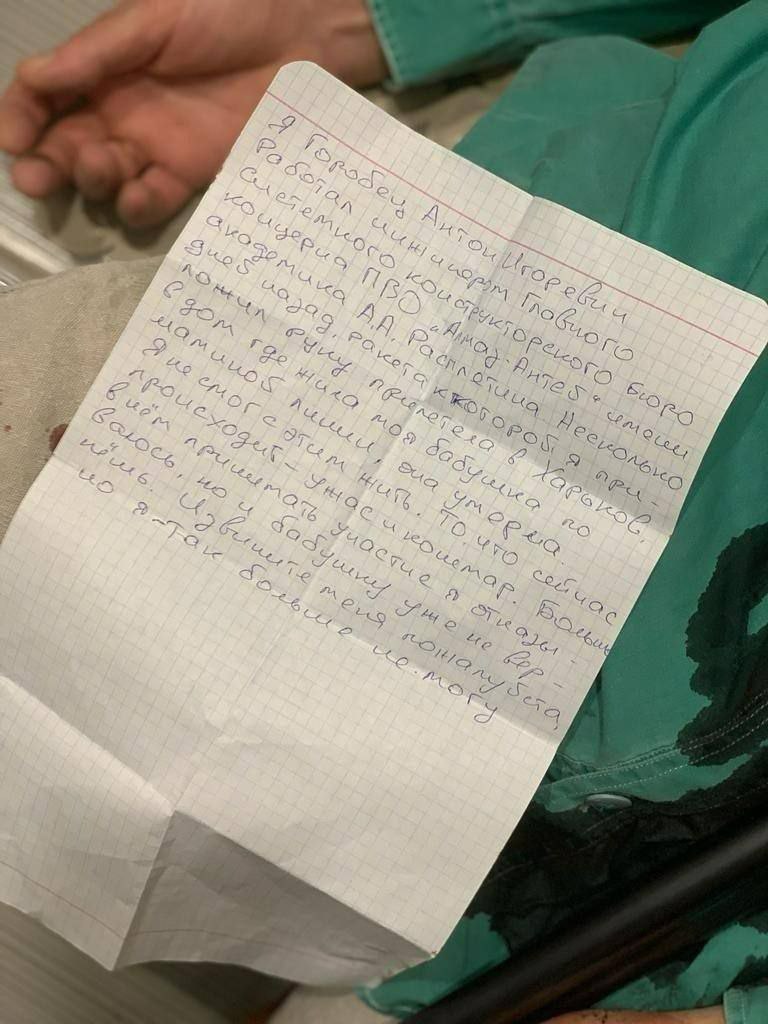 Я Горобец Антон Игоревич
Работал инжинером Главного
системного конструкторского Бюро
концерна ПВО "Алмаз-Антей" имени
академика А.А. Расплетина Несколько
дней назад, ракета к которой я при-
ложил руку прилетела в Харьков,
в дом где жила моя бабушка по
маминой линии, она умерла.
Я не смог с этим жить. То, что сейчас
происходит - ужас и кошмар. Больше
в нём принимать участие я отказы-
ваюсь, но и бабушку уже не вер-
нёшь. Извините меня пожалуйста,
но я так больше не могу